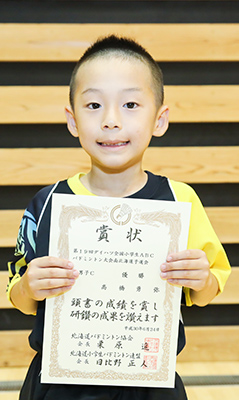 賞状
第19回ダイハツ全国小学生ABC
バドミントン大会北北海道予選会
男子C 優勝
高橋勇弥
頭書の成績を賞し
研鑽の成果を讃えます
平成30年6月24日
北海道バドミントン協会
会長 栗原進
北海道小学生バドミントン連盟
会長 日比野正人